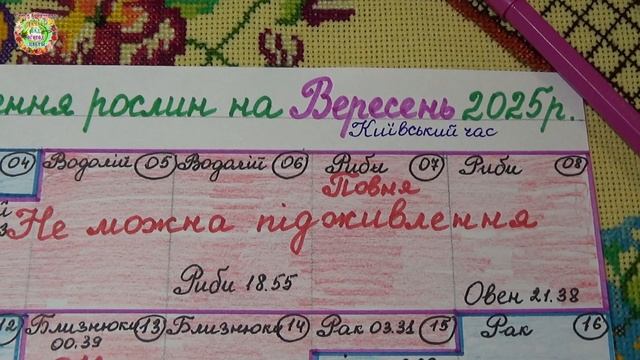 ення рослин на Вересень 2025р.
Київський час
04 Водолій 05 Водолій 06 Рибы 07 Риби 08
Повня
Не можна підживлення
Риби 18.55
Овен 21.38
12 Близнюки 13 Близнюки 14 Рак 03.31 15 Рак 16
00.39